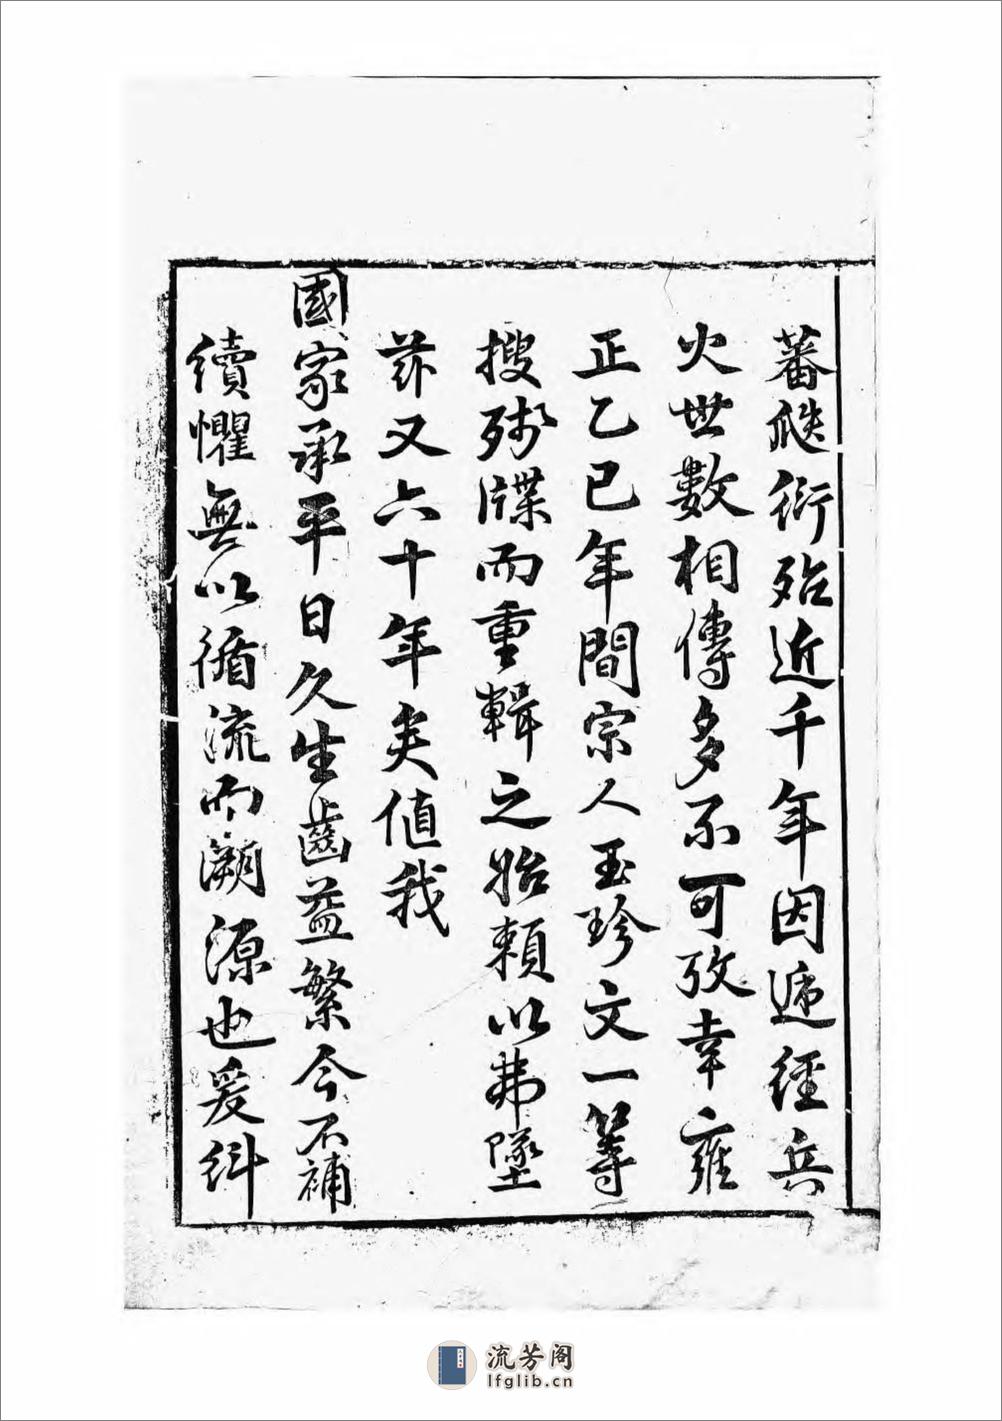 蕃瓞衍殆近千年因遞經兵
火世數相傳多不可攷幸雍
正乙巳年間宗人玉珍文一等
搜殘牒而重輯之始賴以弗墜
茲又六十年矣值我
國家承平日久生齒益繁今不補
續懼無以循流而溯源也爰糾
流芳阁
lfglib.cn